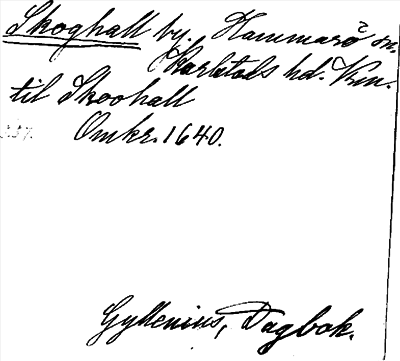 Skoghall by. Hammarö sn.
Karlstads hd. Vrm.
til Skoohall
Omkr. 1640.
Gyllenius, Dagbok.